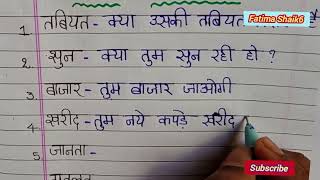 Fatima Shaik6
1. तबियत - क्या उसकी तबियत
2. सुन - क्या तुम सुन रही हो ?
3. बाजार - तुम बाजार जाओगी
4. खरीद - तुम नये कपड़े खरीद
5. जानता -
Subscribe